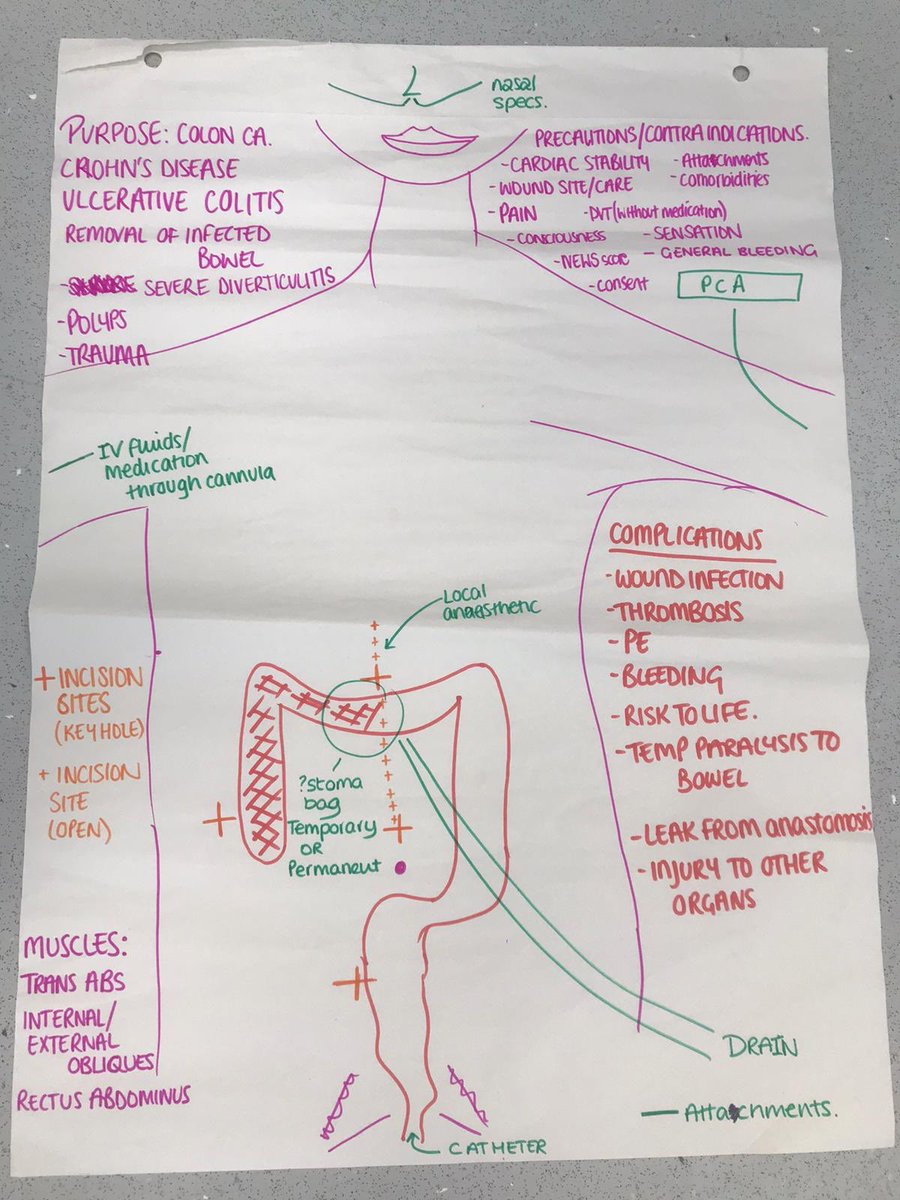 nasal
specs.
PURPOSE: COLON CA.
CROHN'S DISEASE
ULCERATIVE COLITIS
REMOVAL OF INFECTED
BOWEL
- SEVERE DIVERTICULITIS
- POLYPS
- TRAUMA
PRECAUTIONS/CONTRAINDICATIONS.
- CARDIAC STABILITY - Attatchments
- WOUND SITE/CARE - Comorbidities
- PAIN - DVT (without medication)
- CONCIOUSNESS - SENSATION
- NEWS score - GENERAL BLEEDING
- consent
PCA
IV fluids/
medication
through cannula
Local
anaesthetic
+ INCISION
SITES
(KEYHOLE)
+ INCISION
SITE
(OPEN)
?stoma
bag
Temporary
OR
Permanent
COMPLICATIONS
- WOUND INFECTION
- THROMBOSIS
- PE
- BLEEDING
- RISK TO LIFE.
- TEMP PARALYSIS TO
BOWEL
- LEAK FROM anastomosis
- INJURY TO OTHER
ORGANS
MUSCLES:
TRANS ABS
INTERNAL/
EXTERNAL
OBLIQUES
RECTUS ABDOMINUS
DRAIN
— Attatchments.
CATHETER